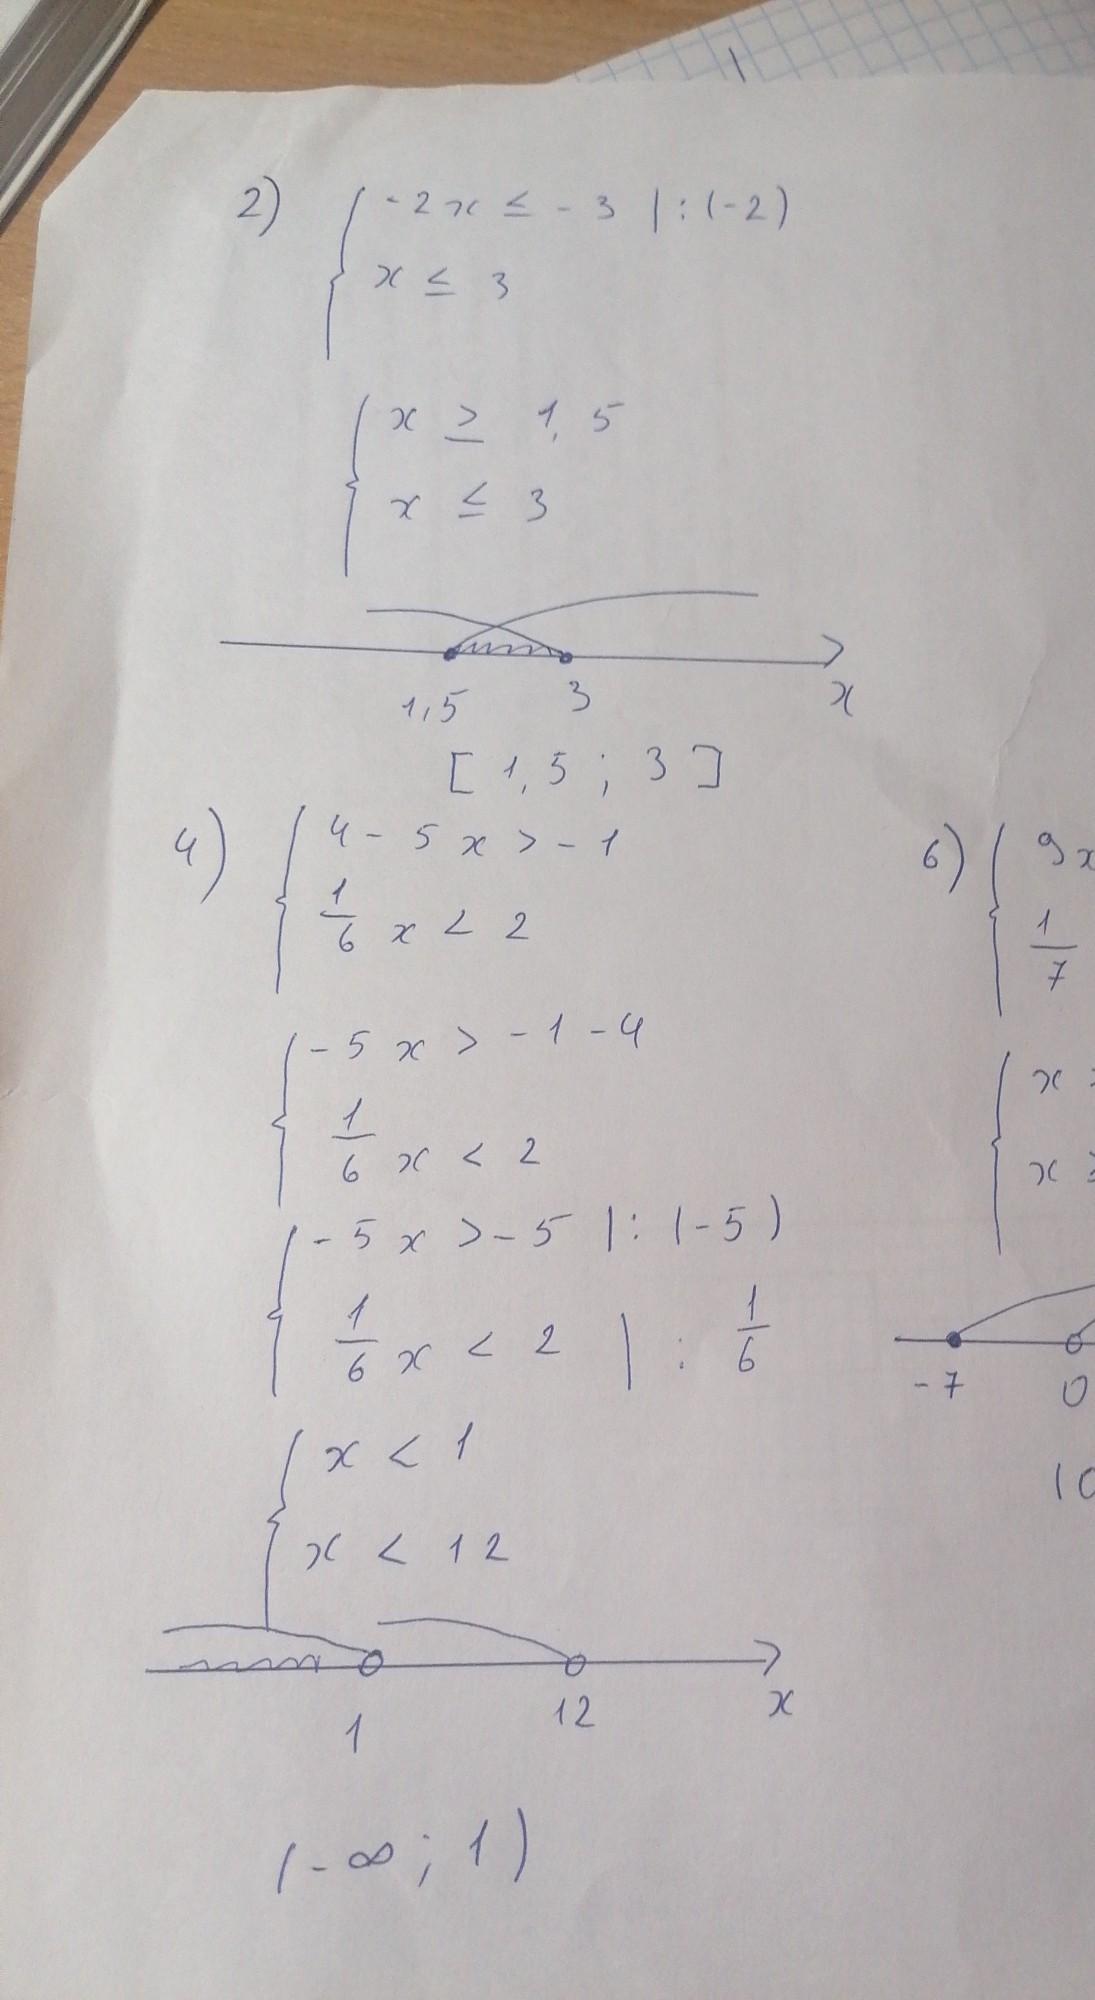 2) { -2x ≤ -3 | : (-2)
x ≤ 3
{ x ≥ 1,5
x ≤ 3
1,5 3 x
[ 1,5 ; 3 ]
4) { 4 - 5x > -1
1/6 x < 2
{ -5x > -1 - 4
1/6 x < 2
{ -5x > -5 | : (-5)
1/6 x < 2 | : 1/6
{ x < 1
x < 12
1 12 x
(-∞; 1)
6) { 9x
1/7
{ x
x
-7 0